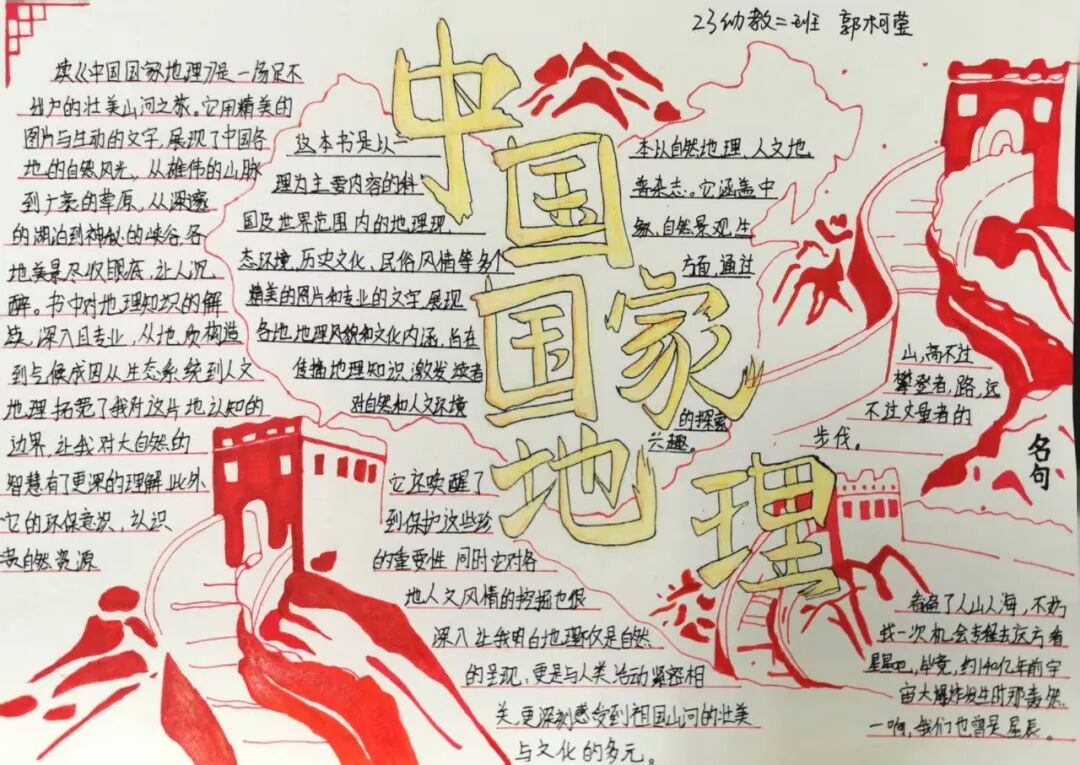 23幼教二班 郭柯莹
中国国家地理
读《中国国家地理》是一场足不
出户的壮美山河之旅。它用精美的
图片与生动的文字,展现了中国各
地的自然风光。从雄伟的山脉
到广袤的草原,从深邃
的湖泊到神秘的峡谷,各
地美景尽收眼底,让人沉
醉。书中对地理知识的解
读,深入且专业,从地质构造
到气候成因从生态系统到人文
地理,拓宽了我对这片地认知的
边界,让我对大自然的
智慧有了更深的理解.此外 它还唤醒了
它的环保意识,认识 到保护这些珍
贵自然资源 的重要性 同时它对各
地人文风情的挖掘也很
深入 让我明白地理不仅是自然
的呈现、更是与人类活动紧密相
关,更深刻感受到祖国山河的壮美
与文化的多元。
这本书是以一 本以自然地理、人文地
理为主要内容的科 普杂志。它涵盖中
国及世界范围内的地理现、 象、自然景观生
态环境、历史文化、民俗风情等多个 方面,通过
精美的图片和专业的文字,展现
各地,地理风貌和文化内涵,旨在
传播地理知识,激发读者
对自然和人文环境 的探索
兴趣。
名句
山,高不过
攀登者,路,远
不过丈量者的
步伐。
看着了人山人海,不妨
找一次机会专程去远方看
星星吧,毕竟,约140亿年前宇
宙大爆炸发生时那轰然
一响,我们也曾是星辰。